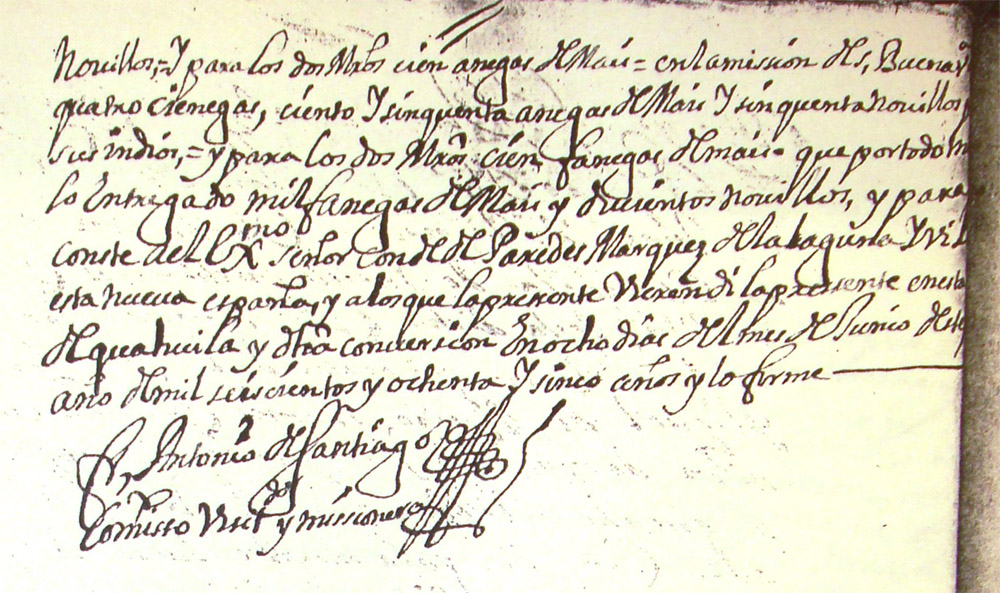 Novillos,= y para los dos Mrōs cien anegas de Mais = en la mision de S, Buenav
quatro cienegas, ciento y sinquenta anegas de Mais y sinquenta novillos p
sus indios,= y para los dos Mrōs cien fanegas de mais = que por todo
lo Entregado mil fanegas de Mais yducientos novillos, y para
conste al Exmo señor Conde de Paredes Marquez de la laguna y Vi
esta nueva españa, y a los que la presente Vieren di la presente en esta
de quahuila y dha conversion En ocho dias del mes de Junio deste
año de mil seiscientos y ochenta y sinco años y lo firme
F, Antonio de Santiago
Comisso Visitdor y missionero